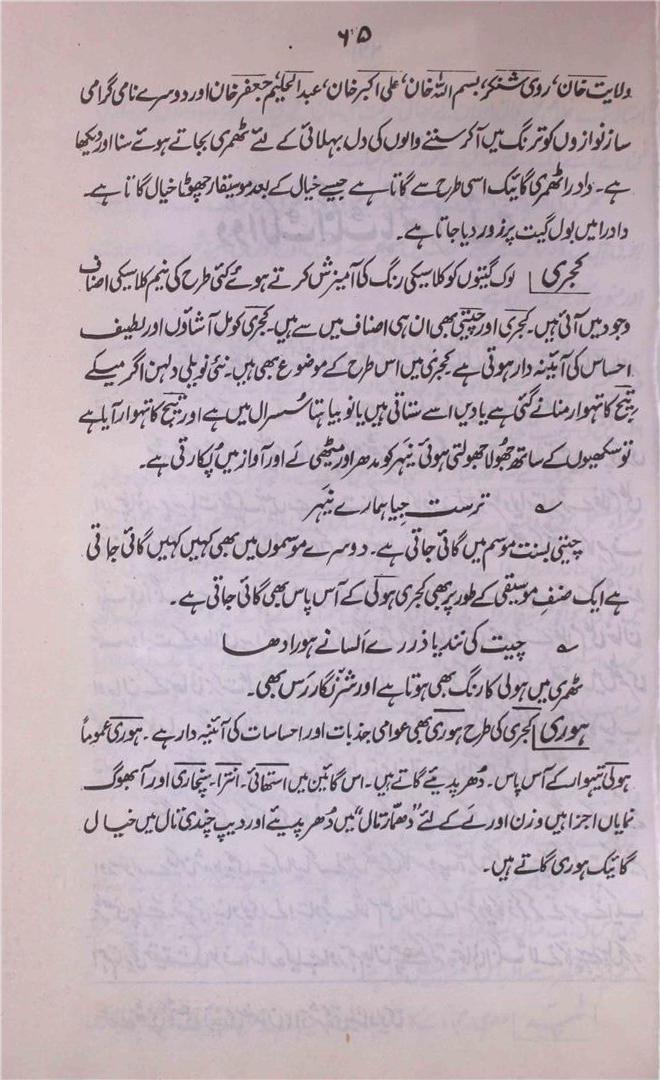 ۶۵
ولایت خان، روی شنکر، بسم اللہ خان، علی اکبر خان، عبدالحلیم جعفر خان اور دوسرے نامی گرامی
ساز نوازوں کو ترنگ میں آ کر سننے والوں کی دل بہلائی کے لئے ٹھمری بجاتے ہوئے سنا اور دیکھا
ہے۔ دادرا ٹھمری گائیک اسی طرح سے گاتا ہے جیسے خیال کے بعد موسیقار چھوٹا خیال گاتا ہے۔
دادرا میں بول گیت پر زور دیا جاتا ہے۔
کجری لوک گیتوں کو کلاسیکی رنگ کی آمیزش کرتے ہوئے کئی طرح کی نیم کلاسیکی اصناف
وجود میں آئی ہیں۔ کجری اور چیتی بھی ان ہی اصناف میں سے ہیں۔ کجری کومل آشاؤں اور لطیف
احساس کی آئینہ دار ہوتی ہے۔ کجری میں اس طرح کے موضوع بھی ہیں۔ نئی نویلی دلہن اگر میکے
تیج کا تہوار منانے گئی ہے یادیں اسے ستاتی ہیں یا نو بیاہتا سُسرال میں ہے اور تیج کا تہوار آیا ہے
تو سکھیوں کے ساتھ جھولا جھولتی ہوئی نیہر کو مدھر اور میٹھی لَے اور آواز میں پُکارتی ہے۔
؎ ترست جِیا ہمارے نیَہر
چیتی بسنت موسم میں گائی جاتی ہے۔ دوسرے موسموں میں بھی کہیں کہیں گائی جاتی
ہے ایک صنفِ موسیقی کے طور پر بھی کجری ہولی کے آس پاس بھی گائی جاتی ہے۔
؎ چیت کی نندیا ذررے اَلسانے ہو رادھا
ٹھمری میں ہولی کا رنگ بھی ہوتا ہے اور شرنگار رَس بھی۔
ہوری کجری کی طرح ہوری بھی عوامی جذبات اور احساسات کی آئینہ دار ہے۔ ہوری عموماً
ہولی تیہوار کے آس پاس۔ دُھرپدیئے گاتے ہیں۔ اس گائین میں استھائی۔ انترا۔ سنچاری اور آبھوگ
نمایاں اجزا ہیں وزن اور لَے کے لئے "دھمّار تال" میں دُھرپدیئے اور دیپ چندی تال میں خیال
گائیک ہوری گاتے ہیں۔